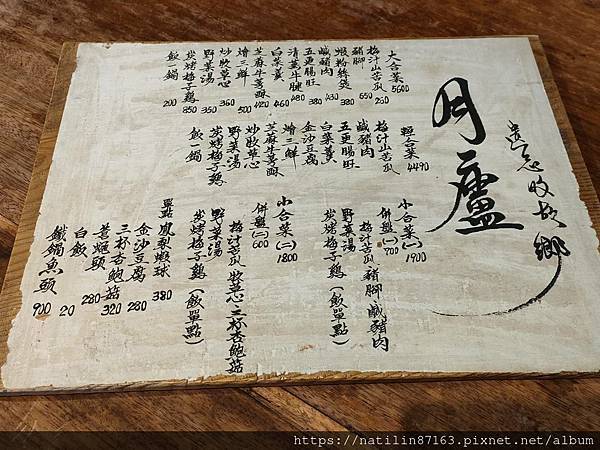 月廬
遺忘的故鄉
大合菜 5600
梅汁山苦瓜 260
豬腳 650
蝦粉絲煲 380
鹹豬肉 430
五更腸旺 380
清蒸牛腱 480
白菜羹 460
芝麻牛蒡酥 420
燴三鮮 500
炒牧草心 360
野菜湯 350
炭烤梅子鷄 850
飯一鍋 200
輕合菜 4490
梅汁山苦瓜
鹹豬肉
五更腸旺
白菜羹
金沙豆腐
燴三鮮
芝麻牛蒡酥
炒牧草心
野菜湯
炭烤梅子鷄
飯一鍋
小合菜(一) 1900
併盤(一) 700
梅汁苦瓜 豬腳 鹹豬肉
野菜湯
炭烤梅子鷄(飯單點)
小合菜(二) 1800
併盤(二) 600
梅汁苦瓜 牧草心 三杯杏鮑菇
野菜湯
炭烤梅子鷄(飯單點)
單點
鳳梨蝦球 380
金沙豆腐 280
三杯杏鮑菇 320
280
白飯 20
鐵鍋魚頭 900
https://natilin87163.pixnet.net/album